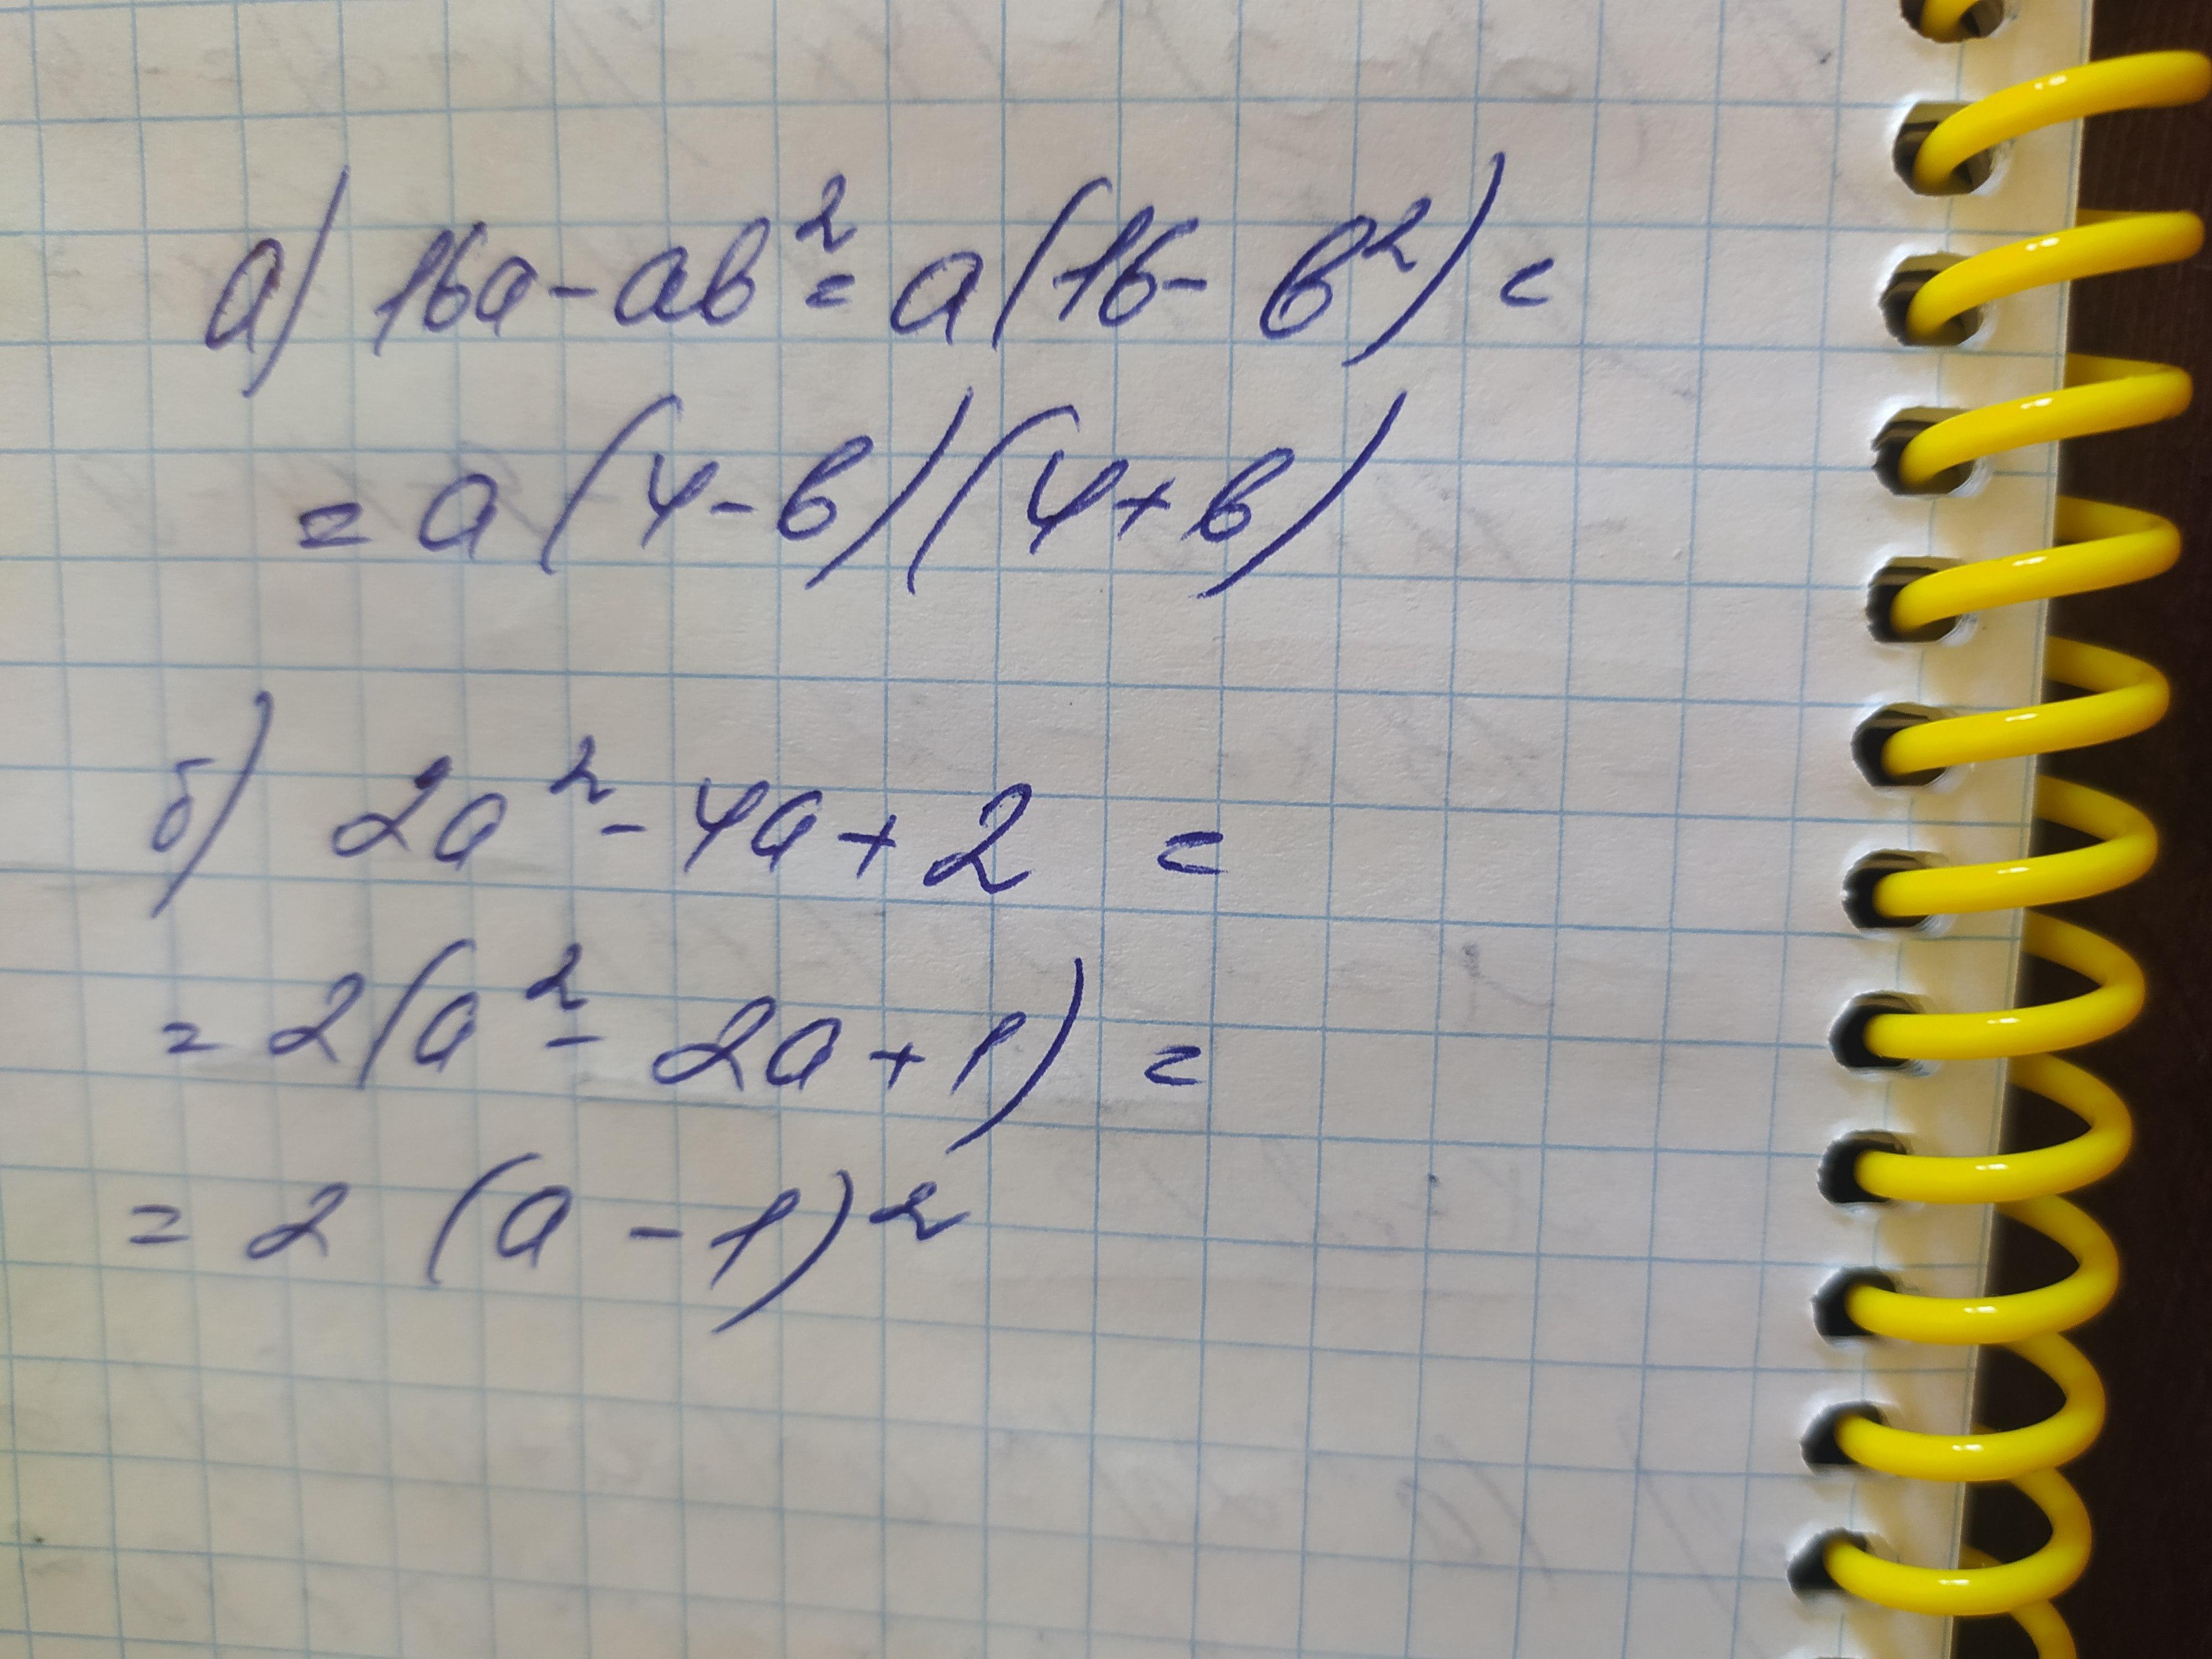 а) 16a - ab² = a(16 - b²) =
= a(4 - b)(4 + b)
б) 2a² - 4a + 2 =
= 2(a² - 2a + 1) =
= 2 (a - 1)²